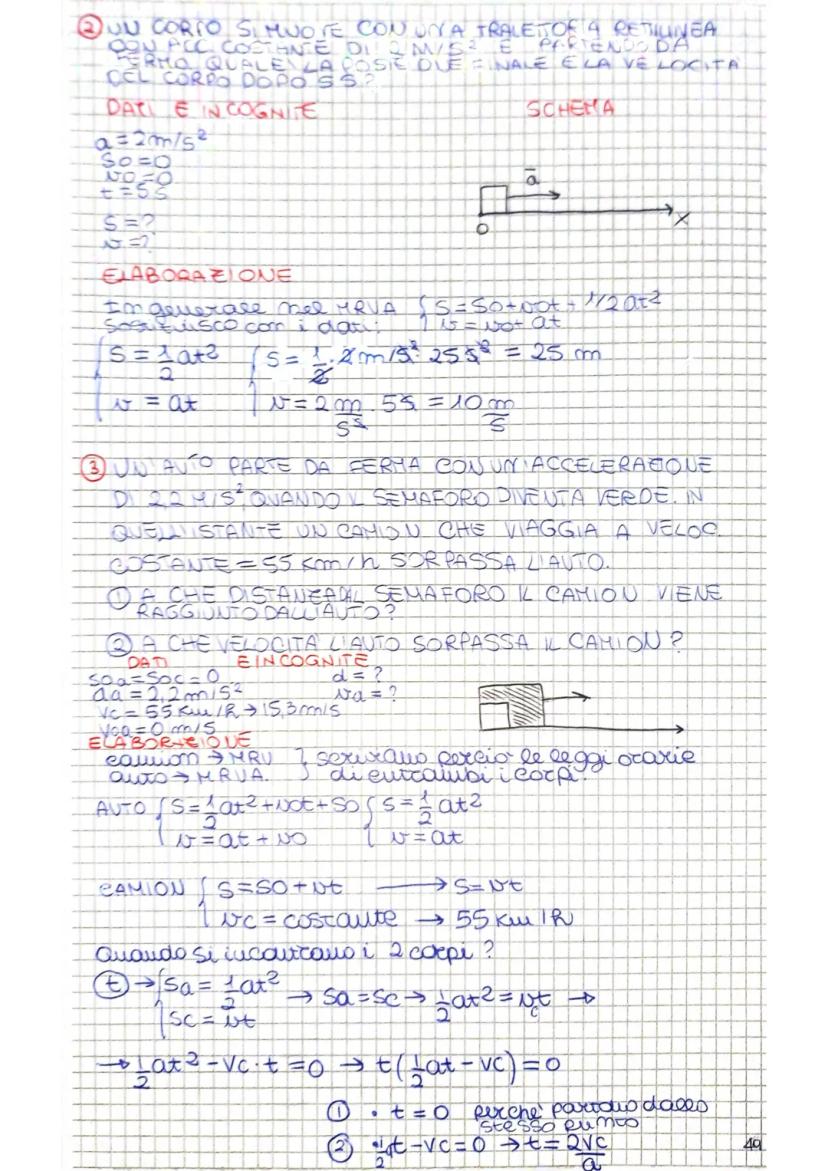 ② UN CORPO SI MUOVE CON UNA TRAIETTORIA RETTILINEA
CON ACC. COSTANTE DI 2 M/S² E PARTENDO DA
FERMO. QUALE LA POSIZIONE FINALE E LA VELOCITÀ
DEL CORPO DOPO 5S?
DATI E INCOGNITE SCHEMA
a = 2m/s²
S0 = 0
v0 = 0
t = 5s
S = ?
v = ?
a
0
X
ELABORAZIONE
In generale nel MRVA { S = S0 + v0t + 1/2 at²
Sostituisco con i dati: v = v0 + at
{ S = 1/2 at² { S = 1/2 · 2 m/s² · 25 s² = 25 m
v = at v = 2 m/s² · 5s = 10 m/s
③ UN'AUTO PARTE DA FERMA CON UN'ACCELERAZIONE
DI 2,2 M/S², QUANDO IL SEMAFORO DIVENTA VERDE. IN
QUELL'ISTANTE UN CAMION CHE VIAGGIA A VELOC.
COSTANTE = 55 Km/h SORPASSA L'AUTO.
① A CHE DISTANZA DAL SEMAFORO IL CAMION VIENE
RAGGIUNTO DALL'AUTO?
② A CHE VELOCITÀ L'AUTO SORPASSA IL CAMION?
DATI E INCOGNITE
S0a = S0c = 0 d = ?
aa = 2,2 m/s² va = ?
Vc = 55 km/h → 15,3 m/s
V0a = 0 m/s
ELABORAZIONE
camion → MRU } scrivano perciò le leggi orarie
auto → MRVA. di entrambi i corpi.
AUTO { S = 1/2 at² + v0t + S0 { S = 1/2 at²
v = at + v0 v = at
CAMION { S = S0 + vt → S = vt
vc = costante → 55 km/h
Quando si incontrano i 2 corpi?
t → { Sa = 1/2 at² → Sa = Sc → 1/2 at² = vct →
Sc = vt
→ 1/2 at² - Vc · t = 0 → t(1/2 at - Vc) = 0
① · t = 0 perchè partono dallo
stesso punto
② · 1/2 at - Vc = 0 → t = 2Vc/a
49